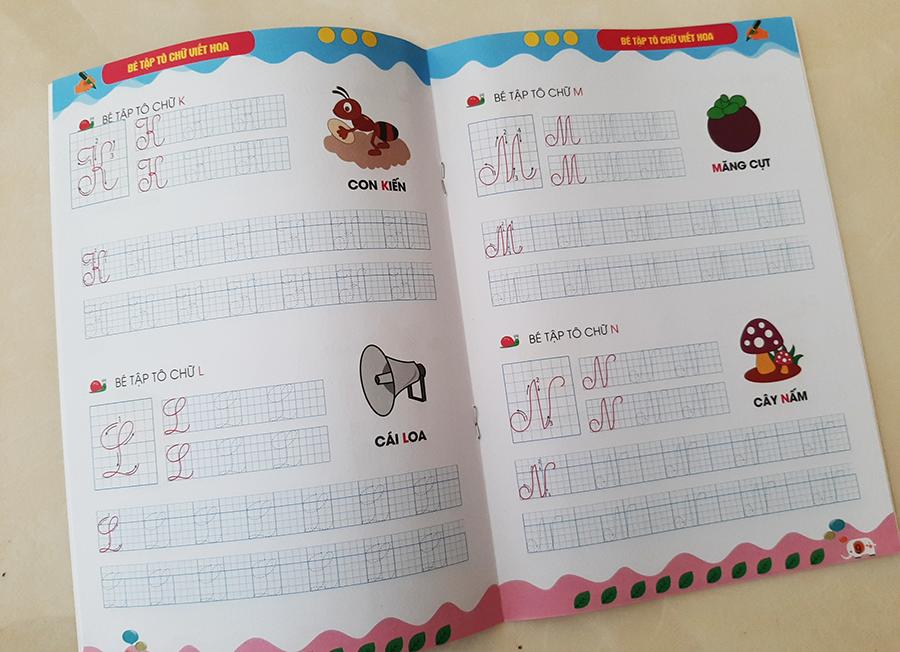 BÉ TẬP TÔ CHỮ VIẾT HOA
BÉ TẬP TÔ CHỮ K
K
K
K
CON KIẾN
K
BÉ TẬP TÔ CHỮ L
L
L
L
CÁI LOA
L
BÉ TẬP TÔ CHỮ VIẾT HOA
BÉ TẬP TÔ CHỮ M
M
M
M
MĂNG CỤT
M
BÉ TẬP TÔ CHỮ N
N
N
N
CÂY NẤM
N